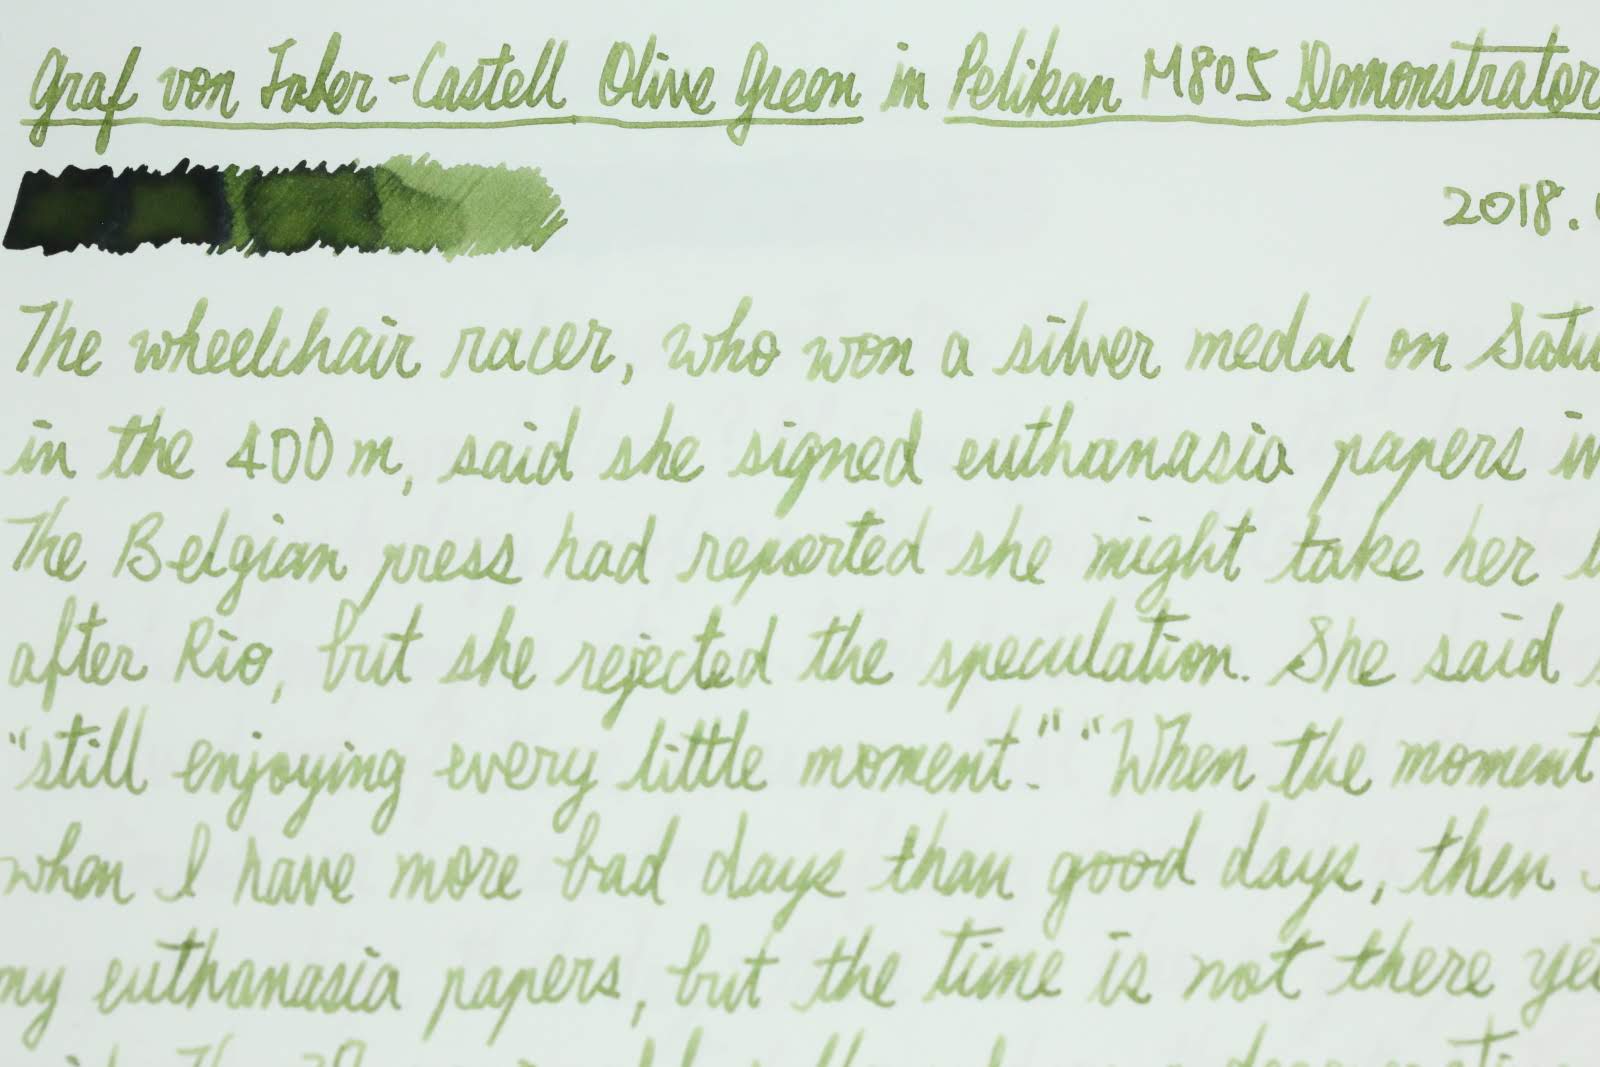 Graf von Faber-Castell Olive Green in Pelikan M805 Demonstrator
2018.
The wheelchair racer, who won a silver medal on Satu
in the 400m, said she signed euthanasia papers in
The Belgian press had reported she might take her
after Rio, but she rejected the speculation. She said
"still enjoying every little moment." "When the moment
when I have more bad days than good days, then
my euthanasia papers, but the time is not there yet